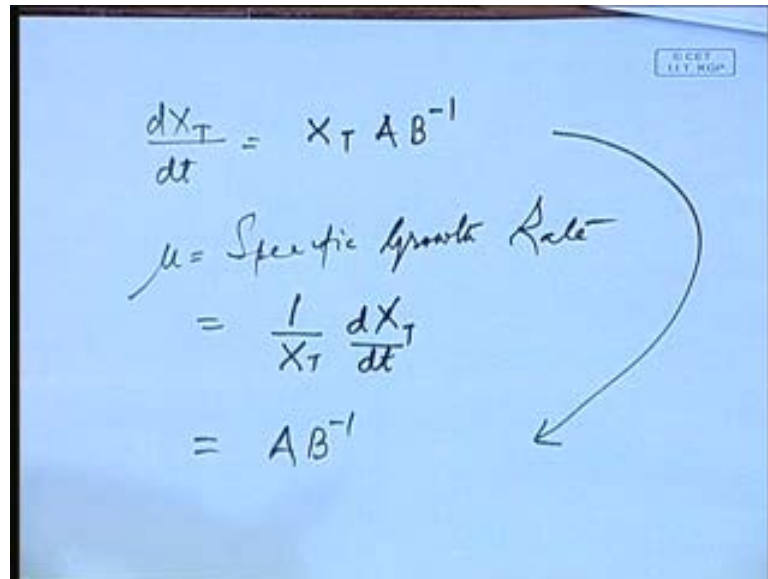 © CET
I.I.T. KGP
dX_T/dt = X_T A B⁻¹
μ = Specific Growth Rate
= 1/X_T dX_T/dt
= A B⁻¹